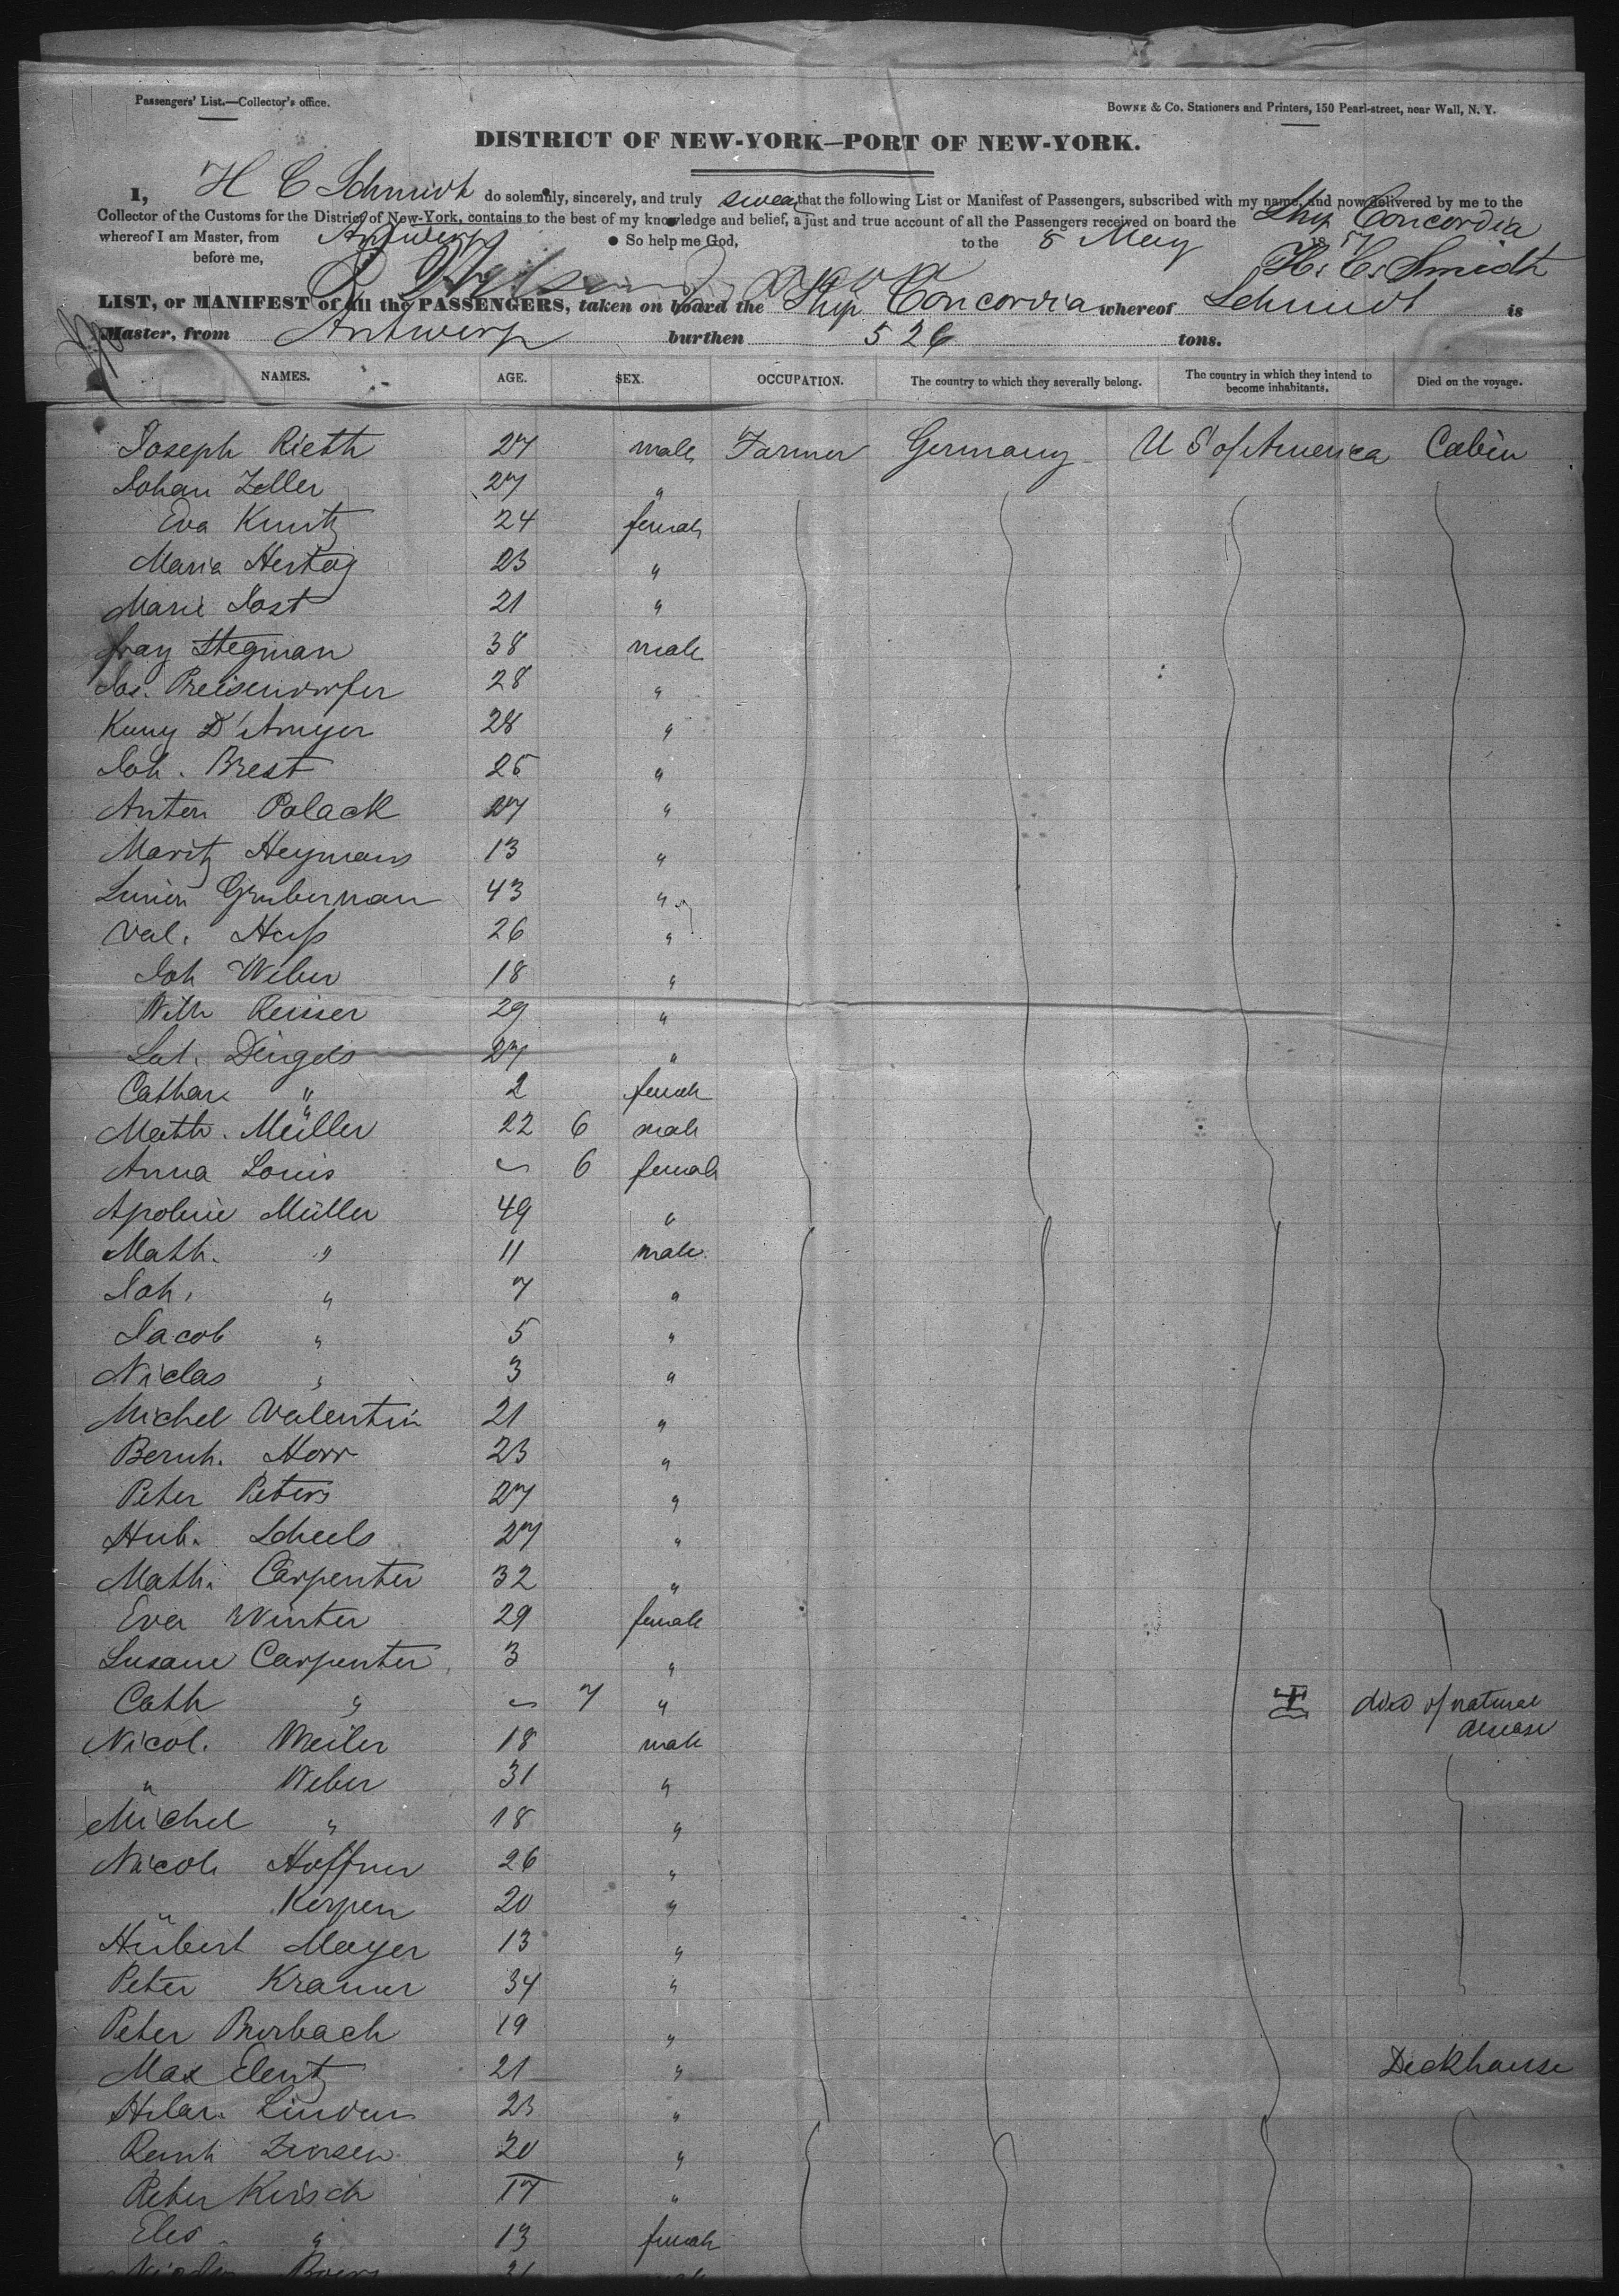 Passengers' List.—Collector's office.
BOWNE & Co. Stationers and Printers, 150 Pearl-street, near Wall, N. Y.
DISTRICT OF NEW-YORK—PORT OF NEW-YORK.
I, H C Schmidt do solemnly, sincerely, and truly swear that the following List or Manifest of Passengers, subscribed with my name, and now delivered by me to the
Collector of the Customs for the District of New-York, contains to the best of my knowledge and belief, a just and true account of all the Passengers received on board the Ship Concordia
whereof I am Master, from Antwerp So help me God, to the 8 May
before me, H. C. Smidt
LIST, or MANIFEST of all the PASSENGERS, taken on board the Ship Concordia whereof Schmidt is
Master, from Antwerp burthen 526 tons.
NAMES. AGE. SEX. OCCUPATION. The country to which they severally belong. The country in which they intend to become inhabitants. Died on the voyage.
Joseph Rieth 27 male Farmer Germany U S of America Cabin
Johan Zeller 27 "
Eva Kuntz 24 female
Maria Hertog 23 "
Marie Jost 21 "
Stegman 38 male
Jos. Preisendorfer 28 "
28 "
Joh. Brest 25 "
Anton Polack 27 "
Moritz Heymans 13 "
Gruberman 43 "
Val. Hafs 26 "
Joh Weber 18 "
Wilh Reisser 29 "
Lat. Dingels 27 "
Cathar " 2 female
Math. Müller 22 6 male
Anna Louis ~ 6 female
Apoline Müller 49 "
Math. " 11 male
Joh. " 7 "
Jacob " 5 "
Niclas " 3 "
Michel Valentin 21 "
Bernh. Horr 23 "
Peter Peters 27 "
Hub. Scheels 27 "
Math. Carpenter 32 "
Eva Winter 29 female
Susane Carpenter 3 "
Cath " ~ 7 " died of natural
disease
Nicol. Meiler 18 male
" Weber 31 "
Michel " 18 "
Nicol. Hoffner 26 "
" Kerpen 20 "
Hubert Mayer 13 "
Peter Kramer 34 "
Peter Burbach 19 "
Max Elentz 21 " Deckhouse
Hilar. Linden 23 "
20 "
Peter Kirsch 17 "
" 13 female